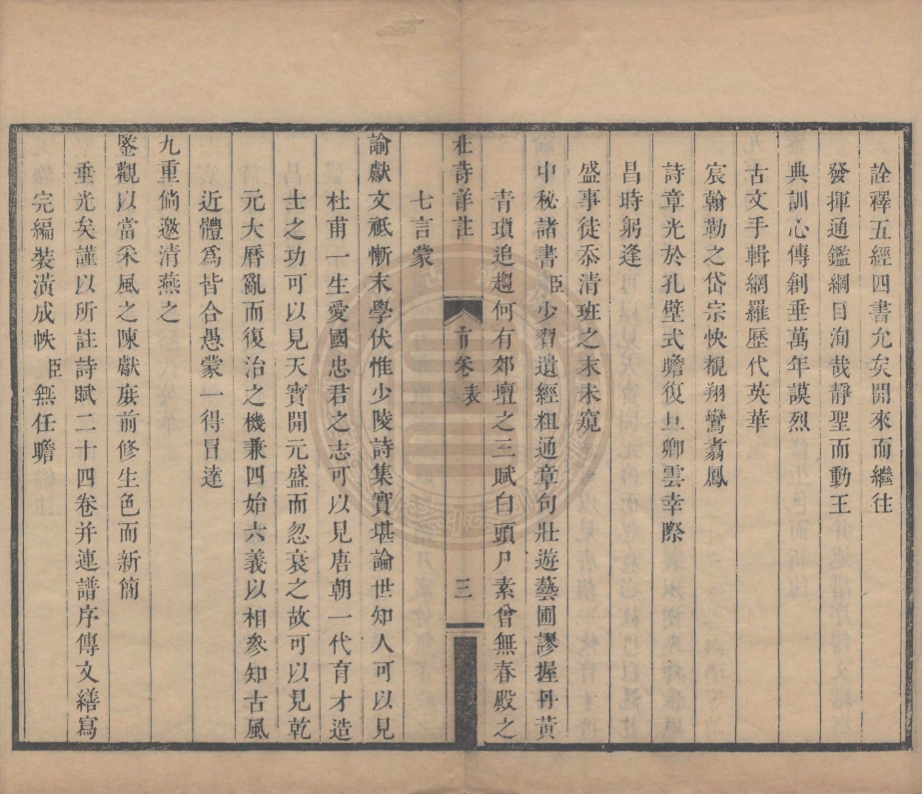 詮釋五經四書允矣開來而繼往
發揮通鑑綱目洵哉靜聖而動王
典訓心傳創垂萬年謨烈
古文手輯網羅歷代英華
宸翰勒之岱宗快覩翔鸞翥鳳
詩章光於孔壁式瞻復旦卿雲幸際
昌時躬逢
盛事徒忝清班之末未窺
中秘諸書臣少習遺經粗通章句壯遊藝圃謬握丹黃
青瑣追趨何有郊壇之三賦白頭尸素曾無春殿之
杜詩詳註 首卷 表 三
七言蒙
諭獻文祇慚末學伏惟少陵詩集實堪論世知人可以見
杜甫一生愛國忠君之志可以見唐朝一代育才造
士之功可以見天寶開元盛而忽衰之故可以見乾
元大曆亂而復治之機兼四始六義以相參知古風
近體爲皆合愚蒙一得冒達
九重倘邀清燕之
鑒觀以當采風之陳獻庶前修生色而新簡
垂光矣謹以所註詩賦二十四卷并連譜序傳文繕寫
完編裝潢成帙臣無任瞻